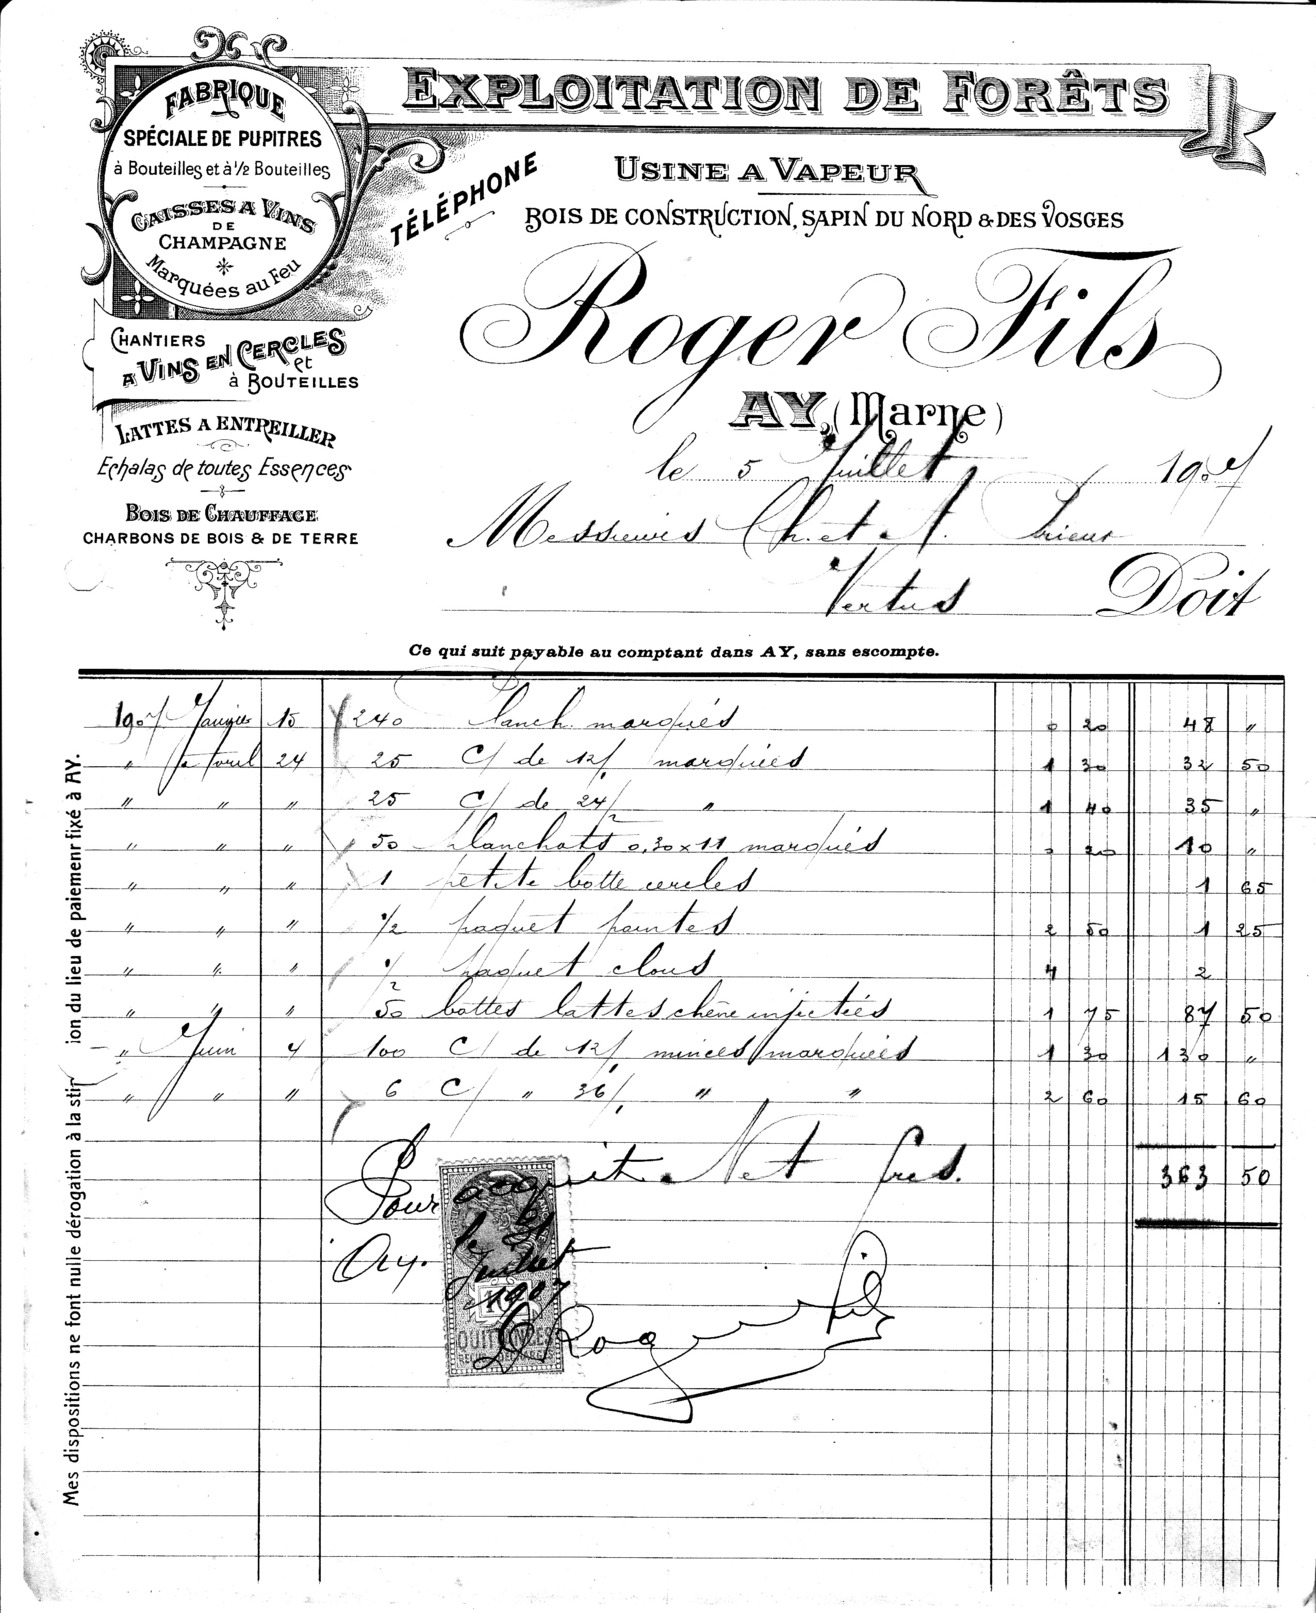 FABRIQUE
SPÉCIALE DE PUPITRES
à Bouteilles et à 1/2 Bouteilles
CAISSES A VINS
DE
CHAMPAGNE
Marquées au Feu
CHANTIERS
A VINS EN CERCLES
et
à BOUTEILLES
LATTES A ENTREILLER
Echalas de toutes Essences
BOIS DE CHAUFFAGE
CHARBONS DE BOIS & DE TERRE
EXPLOITATION DE FORÊTS
TÉLÉPHONE
USINE A VAPEUR
BOIS DE CONSTRUCTION, SAPIN DU NORD & DES VOSGES
Roger Fils
AY, (Marne)
le 5 Juillet 1907
Messieurs Ch. et A. Prieur
Vertus Doit
Ce qui suit payable au comptant dans AY, sans escompte.
1907 Janvier 15 240 Planch. marqués 0 20 48 "
" Avril 24 25 C/ de 12/1 marquées 1 30 32 50
" " " 25 C/ de 24/2 " 1 40 35 "
" " " 50 Planchots 0,30 x 11 marqués 0 20 10 "
" " " 1 petite botte cercles 1 65
" " " 1/2 paquet pointes 2 50 1 25
" " " 1/2 paquet clous 4 2
" " " 50 bottes lattes chêne injectées 1 75 87 50
" Juin 4 100 C/ de 12/1 minces marquées 1 30 130 "
" " " 6 C/ " 36/1 " " 2 60 15 60
Net frcs. 363 50
Pour acquit
Ay. le 31
Juillet
1907
QUITTANCES
Roger Fils
Mes dispositions ne font nulle dérogation à la stip ion du lieu de paiement fixé à AY.